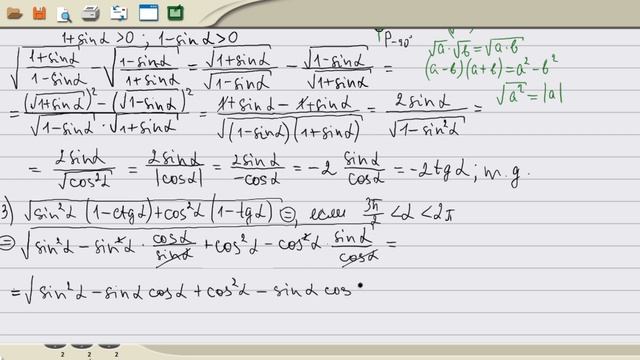 1+sinα>0 ; 1-sinα>0
P-90°
√a·√b=√a·b
(a-b)(a+b)=a²-b²
√a²=|a|
√(1+sinα)/(1-sinα) - √(1-sinα)/(1+sinα) = √(1+sinα)/√(1-sinα) - √(1-sinα)/√(1+sinα) =
= ((√1+sinα)² - (√1-sinα)²)/(√1-sinα · √1+sinα) = (1+sinα - 1+sinα)/√(1-sinα)(1+sinα) = 2sinα/√1-sin²α =
= 2sinα/√cos²α = 2sinα/|cosα| = 2sinα/-cosα = -2 sinα/cosα = -2tgα; т.д.
3) √sin²α(1-ctgα)+cos²α(1-tgα) =, если 3π/2 <α<2π
= √sin²α - sin²α · cosα/sinα + cos²α - cos²α · sinα/cosα =
= √sin²α - sinα cosα + cos²α - sinα cos
2 2 2